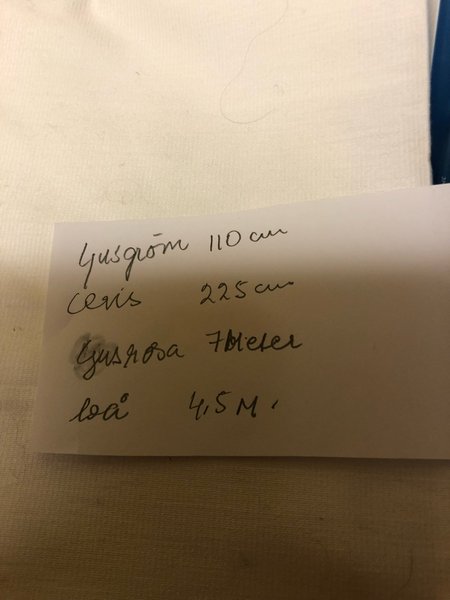 ljusgrön 110 cm
Ceris 225 cm
ljusrosa 7 Meter
4,5 M.